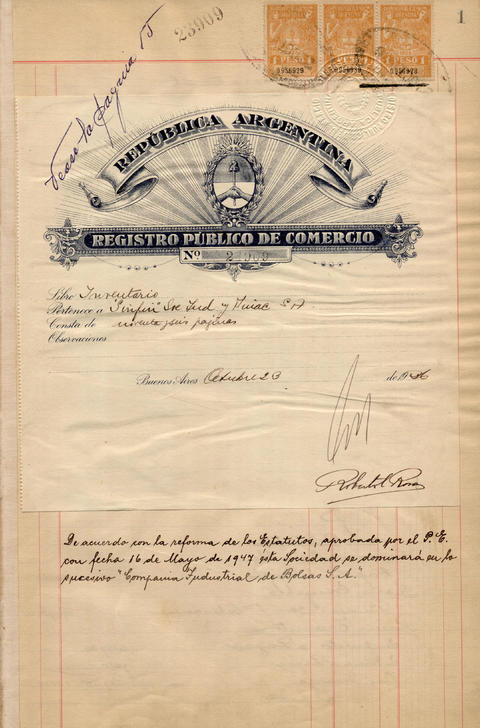 1
23909
Vease la página 15
1 PESO 1
1 PESO 1
1 PESO 1
REPÚBLICA ARGENTINA
REGISTRO PÚBLICO DE COMERCIO
Nº 23909
Libro Inventario
Pertenece a Sve Ind y Minac S A
Consta de noventa y seis páginas
Observaciones
Buenos Aires Octubre 23 de 1936
De acuerdo con la reforma de los Estatutos, aprobada por el P. E.
con fecha 16 de Mayo de 1947 ésta Sociedad se dominará en lo
sucesivo "Compania Industrial de Bolsas S. A."